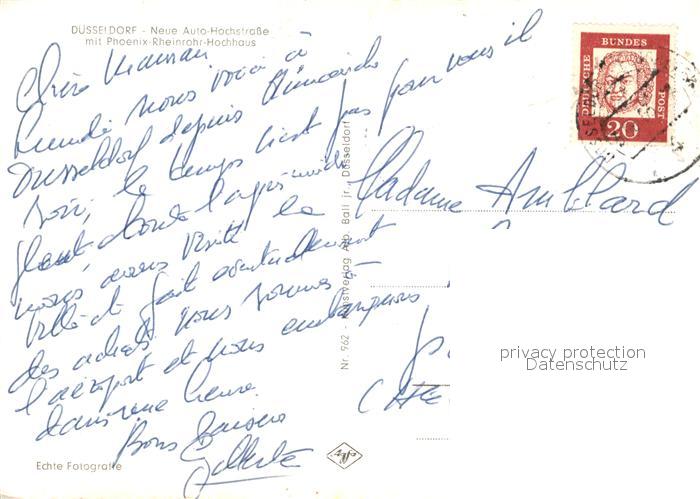 DÜSSELDORF - Neue Auto-Hochstraße
mit Phoenix-Rheinrohr-Hochhaus
Chère Maman
Lundi nous voici à
Dusseldorf depuis Dimanche
soir, le temps n'est pas fameux il
pleut doute l'après-midi
nous avons visité la
ville et fait éventuellement
des achats nous sommes à
l'aéroport et nous embarquons
dans une heure.
Bons Baisers
Echte Fotografie
Nr. 962 - Kunstverlag Alb. Ball jr., Düsseldorf
DEUTSCHE BUNDESPOST
20
Madame Amblard
privacy protection
Datenschutz